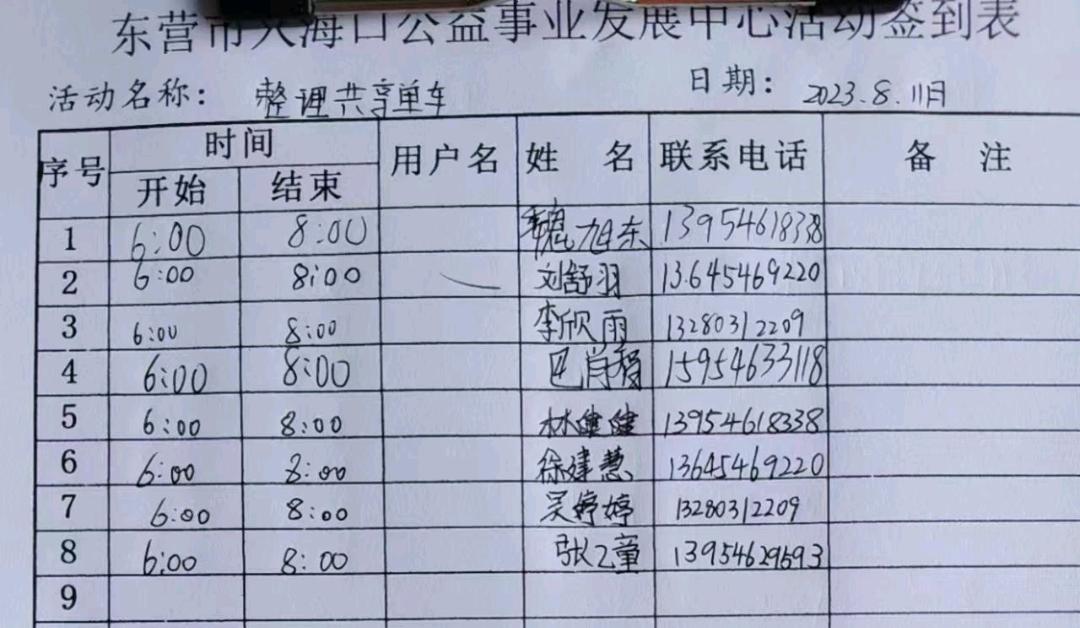 东营市入海口公益事业发展中心活动签到表
活动名称: 整理共享单车 日期: 2023.8.11日
序号 时间 用户名 姓 名 联系电话 备 注
开始 结束
1 6:00 8:00 魏旭东 13954618338
2 6:00 8:00 刘舒羽 13645469220
3 6:00 8:00 李欣雨 13280312209
4 6:00 8:00 巴肖程 15954633118
5 6:00 8:00 林健健 13954618338
6 6:00 8:00 徐建慧 13645469220
7 6:00 8:00 吴婷婷 13280312209
8 6:00 8:00 张乙童
9